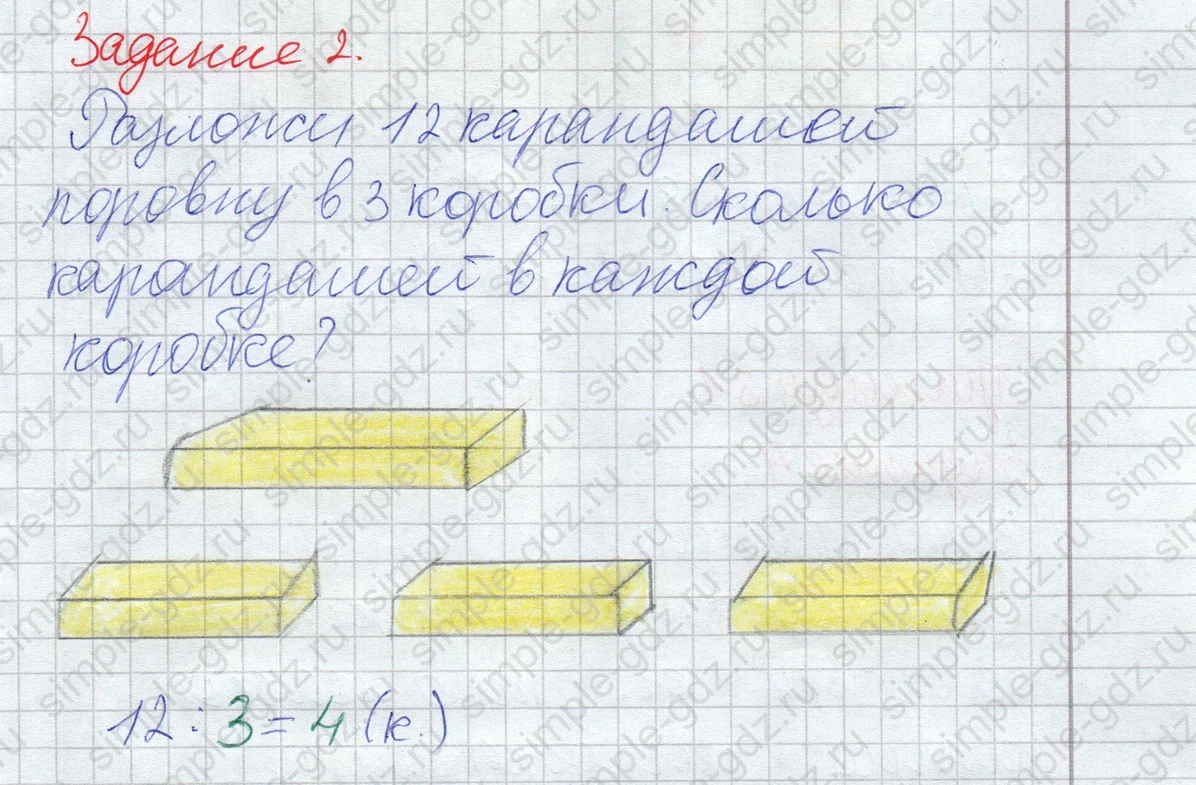 Задание 2.
Разложи 12 карандашей
поровну в 3 коробки. Сколько
карандашей в каждой
коробке?
12 : 3 = 4 (к.)
simple-gdz.ru